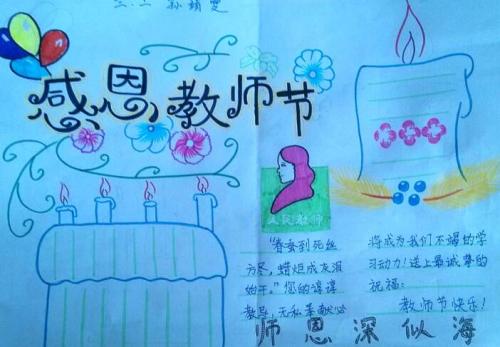 感恩教师节
人民教师
"春蚕到死丝
方尽，蜡炬成灰泪
始干。"您的谆谆
教导，无私奉献必
将成为我们不竭的学
习动力！送上最诚挚的
祝福：
教师节快乐！
师恩深似海